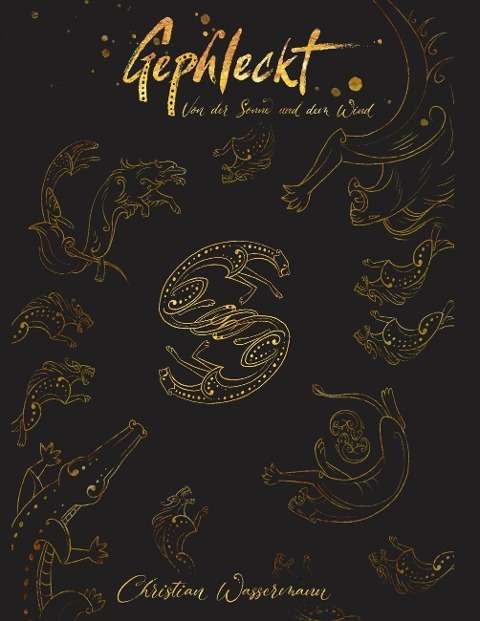 Gephleckt
Von der Sonne und dem Wind
Christian Wassermann